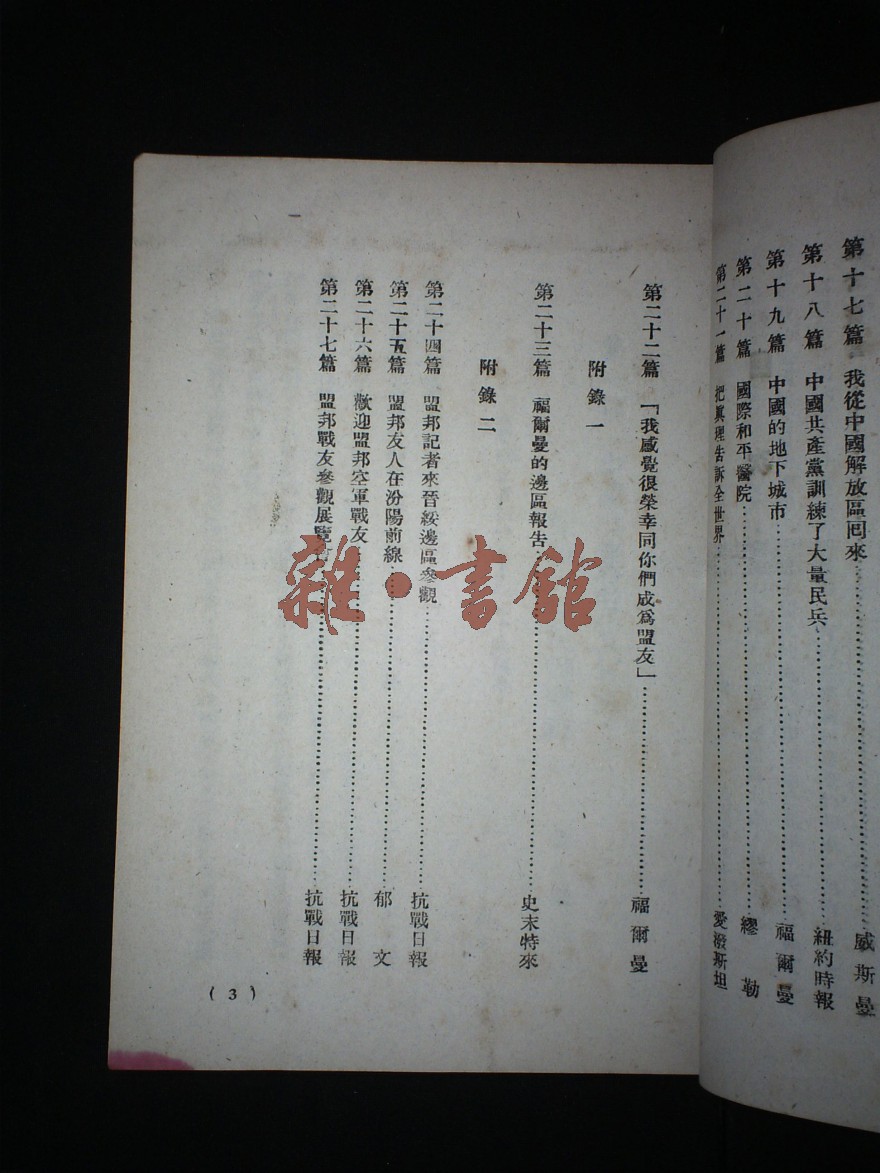 第十七篇 我從中國解放區囘來……威斯曼
第十八篇 中國共產黨訓練了大量民兵……紐約時報
第十九篇 中國的地下城市……福爾曼
第二十篇 國際和平醫院……繆勒
第二十一篇 把眞理告訴全世界……愛潑斯坦
第二十二篇 「我感覺很榮幸同你們成爲盟友」……福爾曼
附錄一
第二十三篇 福爾曼的邊區報告……史末特來
附錄二
第二十四篇 盟邦記者來晉綏邊區參觀……抗戰日報
第二十五篇 盟邦友人在汾陽前線……郁文
第二十六篇 歡迎盟邦空軍戰友……抗戰日報
第二十七篇 盟邦戰友參觀展覽會……抗戰日報
(3)
雜·書館